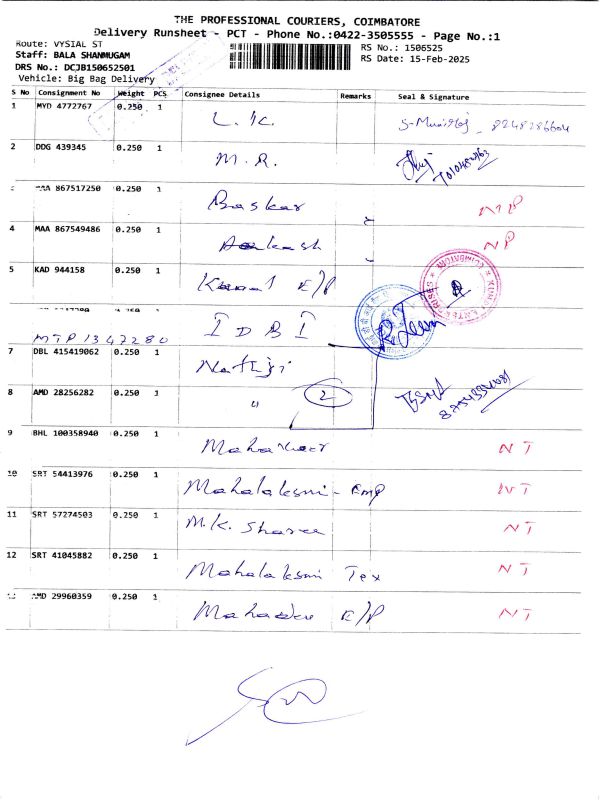 THE PROFESSIONAL COURIERS, COIMBATORE
Delivery Runsheet - PCT - Phone No.:0422-3505555 - Page No.:1
Route: VYSIAL ST
RS No.: 1506525
Staff: BALA SHANMUGAM
RS Date: 15-Feb-2025
DRS No.: DCJB150652501
Vehicle: Big Bag Delivery
S No Consignment No Weight PCS Consignee Details Remarks Seal & Signature
1 MYD 4772767 0.250 1 L.Ic. 8248286604
2 DDG 439345 0.250 1 M.R.
MAA 867517250 0.250 1 Baskar
4 MAA 867549486 0.250 1 Aakash NP
5 KAD 944158 0.250 1 E/P
MTP 1347280 IDBI
7 DBL 415419062 0.250 1
8 AMD 28256282 0.250 1 " 2
9 BHL 100358940 0.250 1 Mahaveer NT
10 SRT 54413976 0.250 1 Mahalaksmi - Emp NT
11 SRT 57274503 0.250 1 M.K. Sharee NT
12 SRT 41045882 0.250 1 Mahalaksmi Tex NT
AMD 29960359 0.250 1 E/P NT